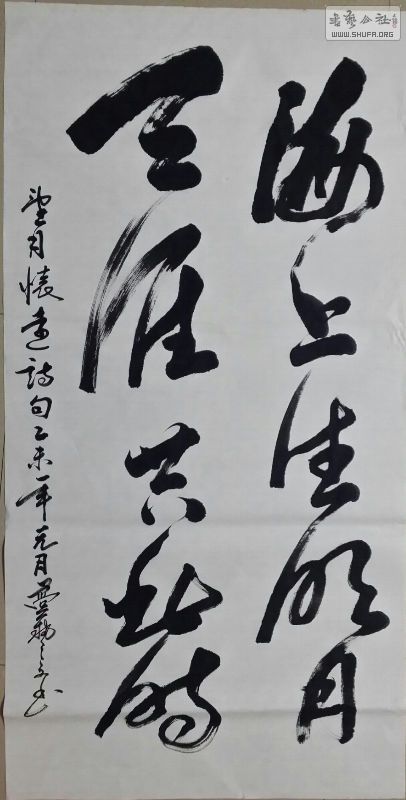 海上生明月
天涯共此時
望月懷遠詩句乙未年元月
書藝公社
WWW.SHUFA.ORG